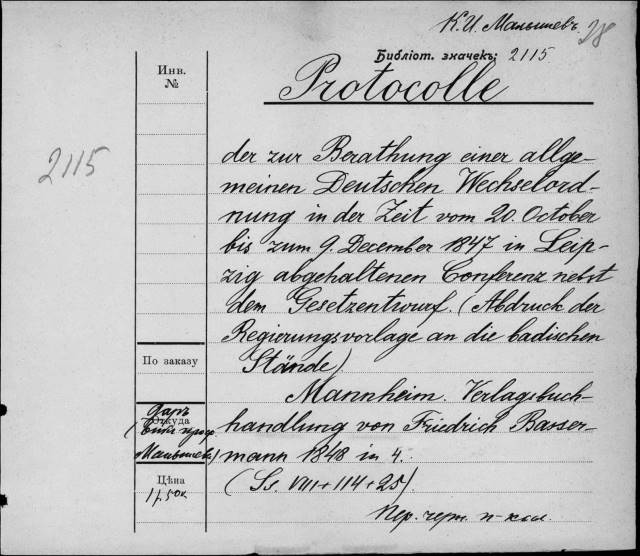 К.И. Малышевъ 28
Библіот. значекъ: 2115
Инв.
№
Protocolle
2115
der zur Berathung einer allge-
meinen Deutschen Wechselord-
nung in der Zeit vom 20. October
bis zum 9. December 1847 in Leip-
zig abgehaltenen Conferenz nebst
dem Gesetzentwurf. (Abdruck der
Regierungsvorlage an die badischen
Stände)
По заказу
Mannheim. Verlagsbuch-
даръ
Откуда
(Библ. проф.
Малышева)
handlung von Friedrich Basser-
mann 1848 in 4.
Цѣна
(Ss. VIII + 114 + 25).
Пер. черн. п-кол.